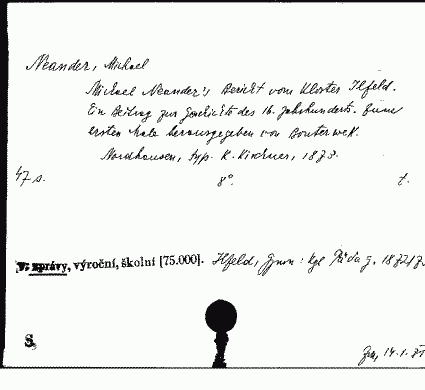 Neander, Michael
Michael Neander's Bericht vom Kloster Ilfeld.
Ein Beitrag zur Geschichte des 16. Jahrhunderts. Zum
ersten Male herausgegeben von Bouterwek.
Nordhausen, typ. K. Kirchner, 1873.
47 s. 8°. t.
v. zprávy, výroční, školní [75.000]. Ilfeld, Gymn: kgl
S,
14.1.